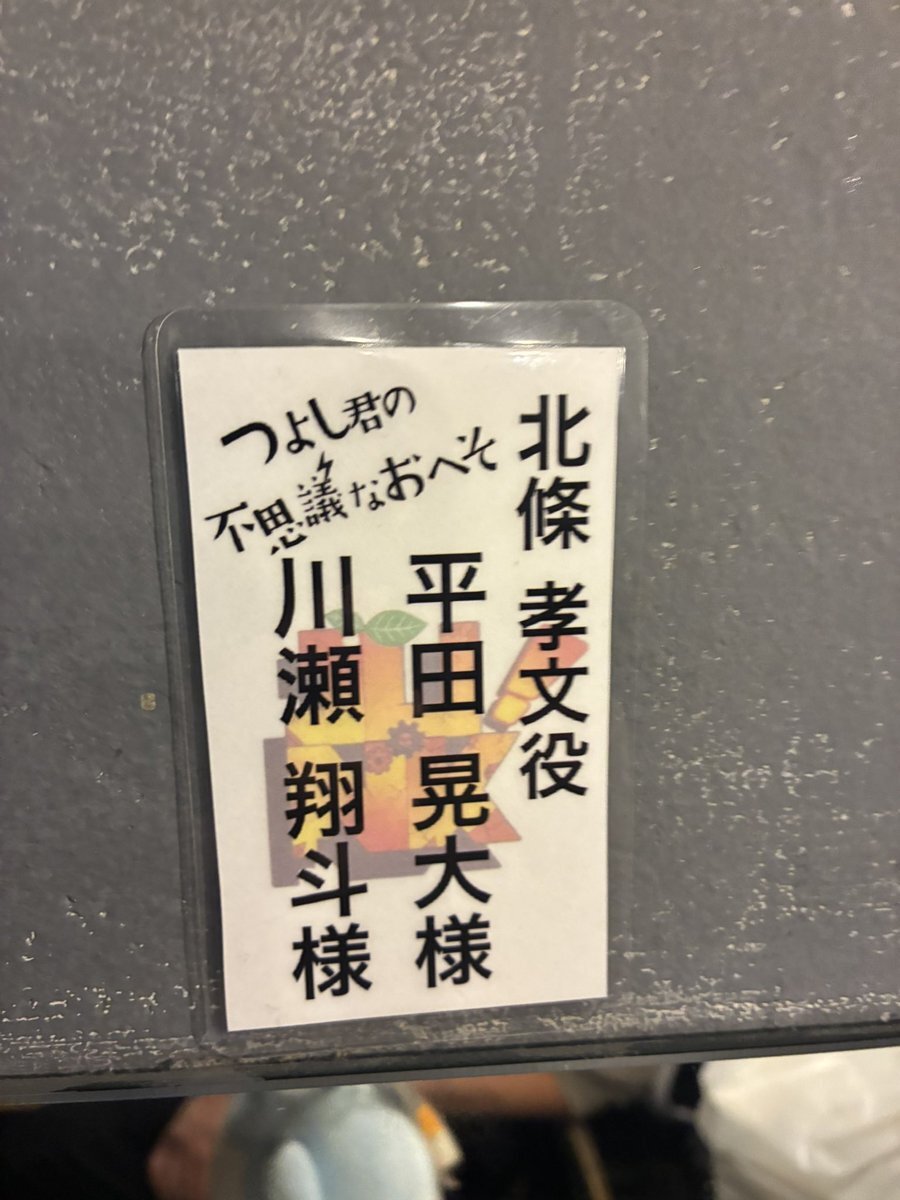 つよし君の
不思議なおへそ
北條 孝文役
平田 晃大様
川瀬 翔斗様